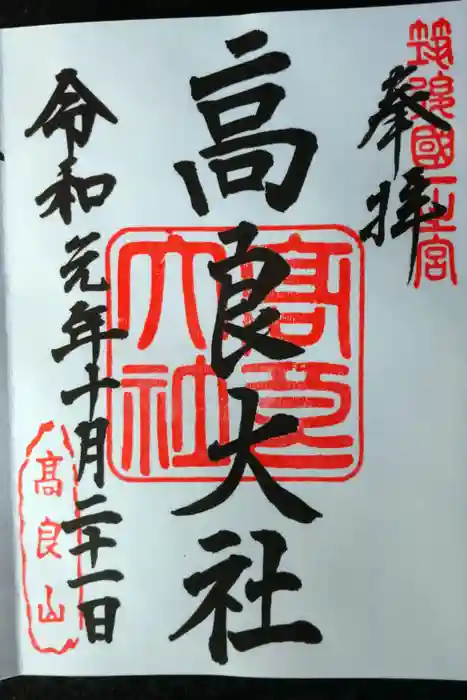 筑後國一之宮
奉拝
高良大社
髙良大社
令和元年十月二十一日
髙良山